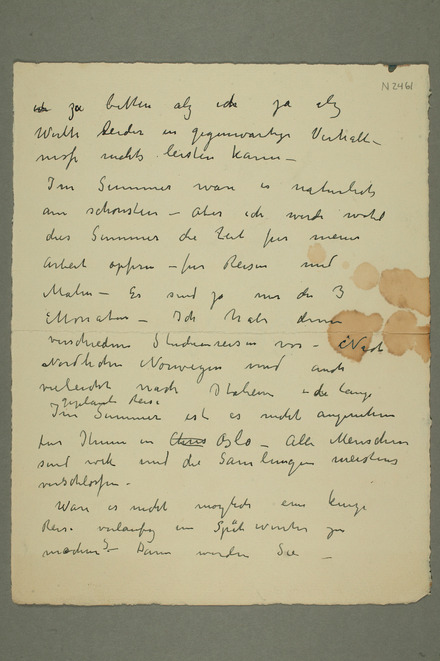 N 2461
zu bitten als ich ja als
Wirth leider in gegenwartige Verhält-
niss nichts leisten kann –
Im Sommer ware es naturlich
am schonsten – Aber ich werde wohl
dies Sommer die Zeit für meine
Arbeit opfern – für Reisen und
Malen – Es sind ja nur die 3
Monaten – Ich habe
verschiedene Studienreisen vor – Nach
Nordlichen Norwegen und auch
vieleicht nach Italien – die lange
geplante Reise
Im Sommer ist es nicht angenehm
für Ihnen in Oslo – Alle Menschen
sind weck und die Samlungen meistens
verschlossen –
Ware es nicht moglich eine kurze
Reise vorlaufig im Spät Winter zu
machen? – Dann werden Sie –